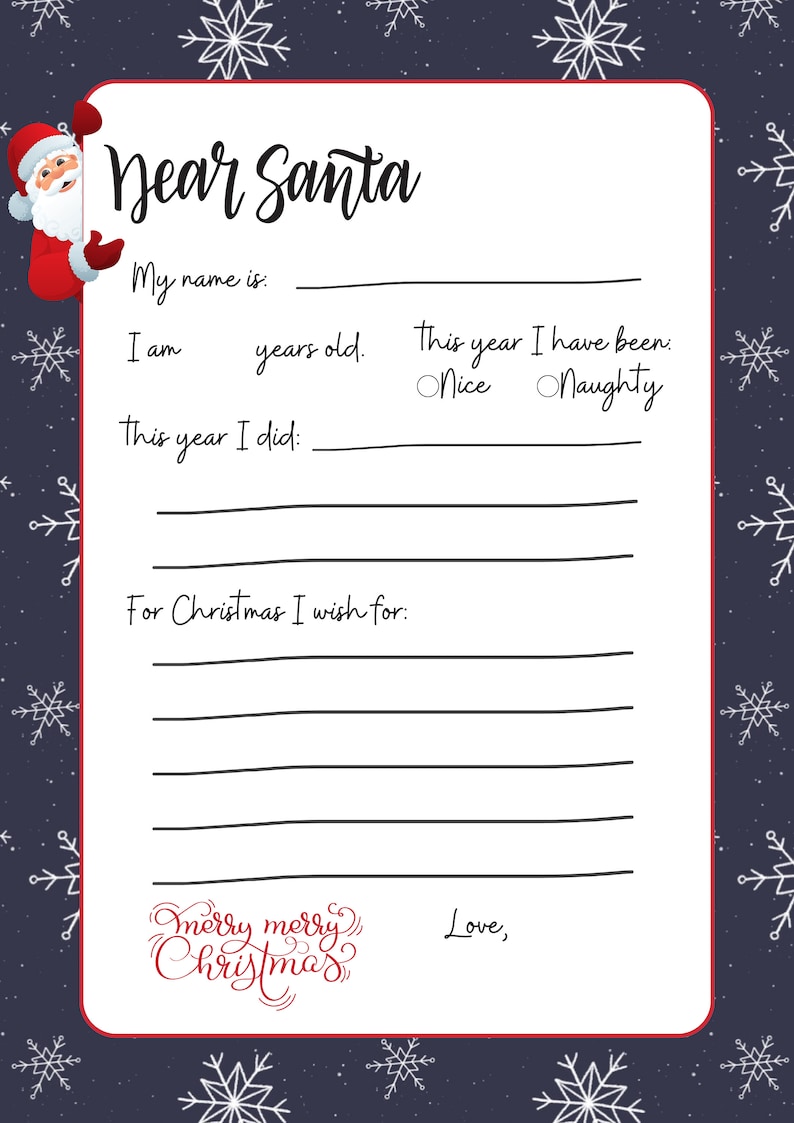 Dear Santa
My name is:
I am years old.
This year I have been:
Nice Naughty
This year I did:
For Christmas I wish for:
merry merry
Christmas
Love,